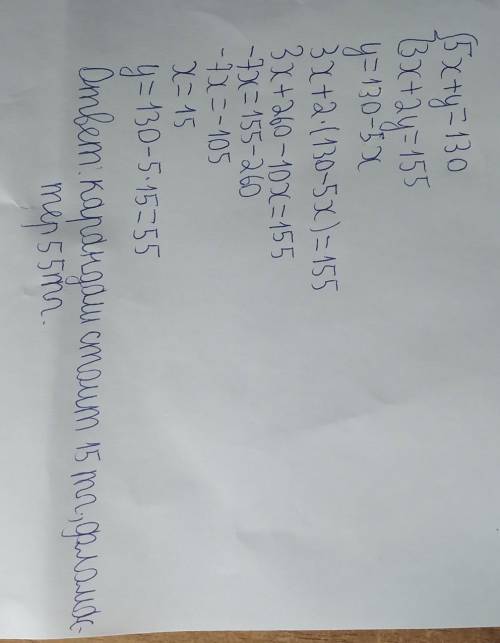 {5x+y=130
{3x+2y=155
y=130-5x
3x+2·(130-5x)=155
3x+260-10x=155
-7x=155-260
-7x=-105
x=15
y=130-5·15=55
Ответ: карандаш стоит 15 тг., фломас-
тер 55тг.